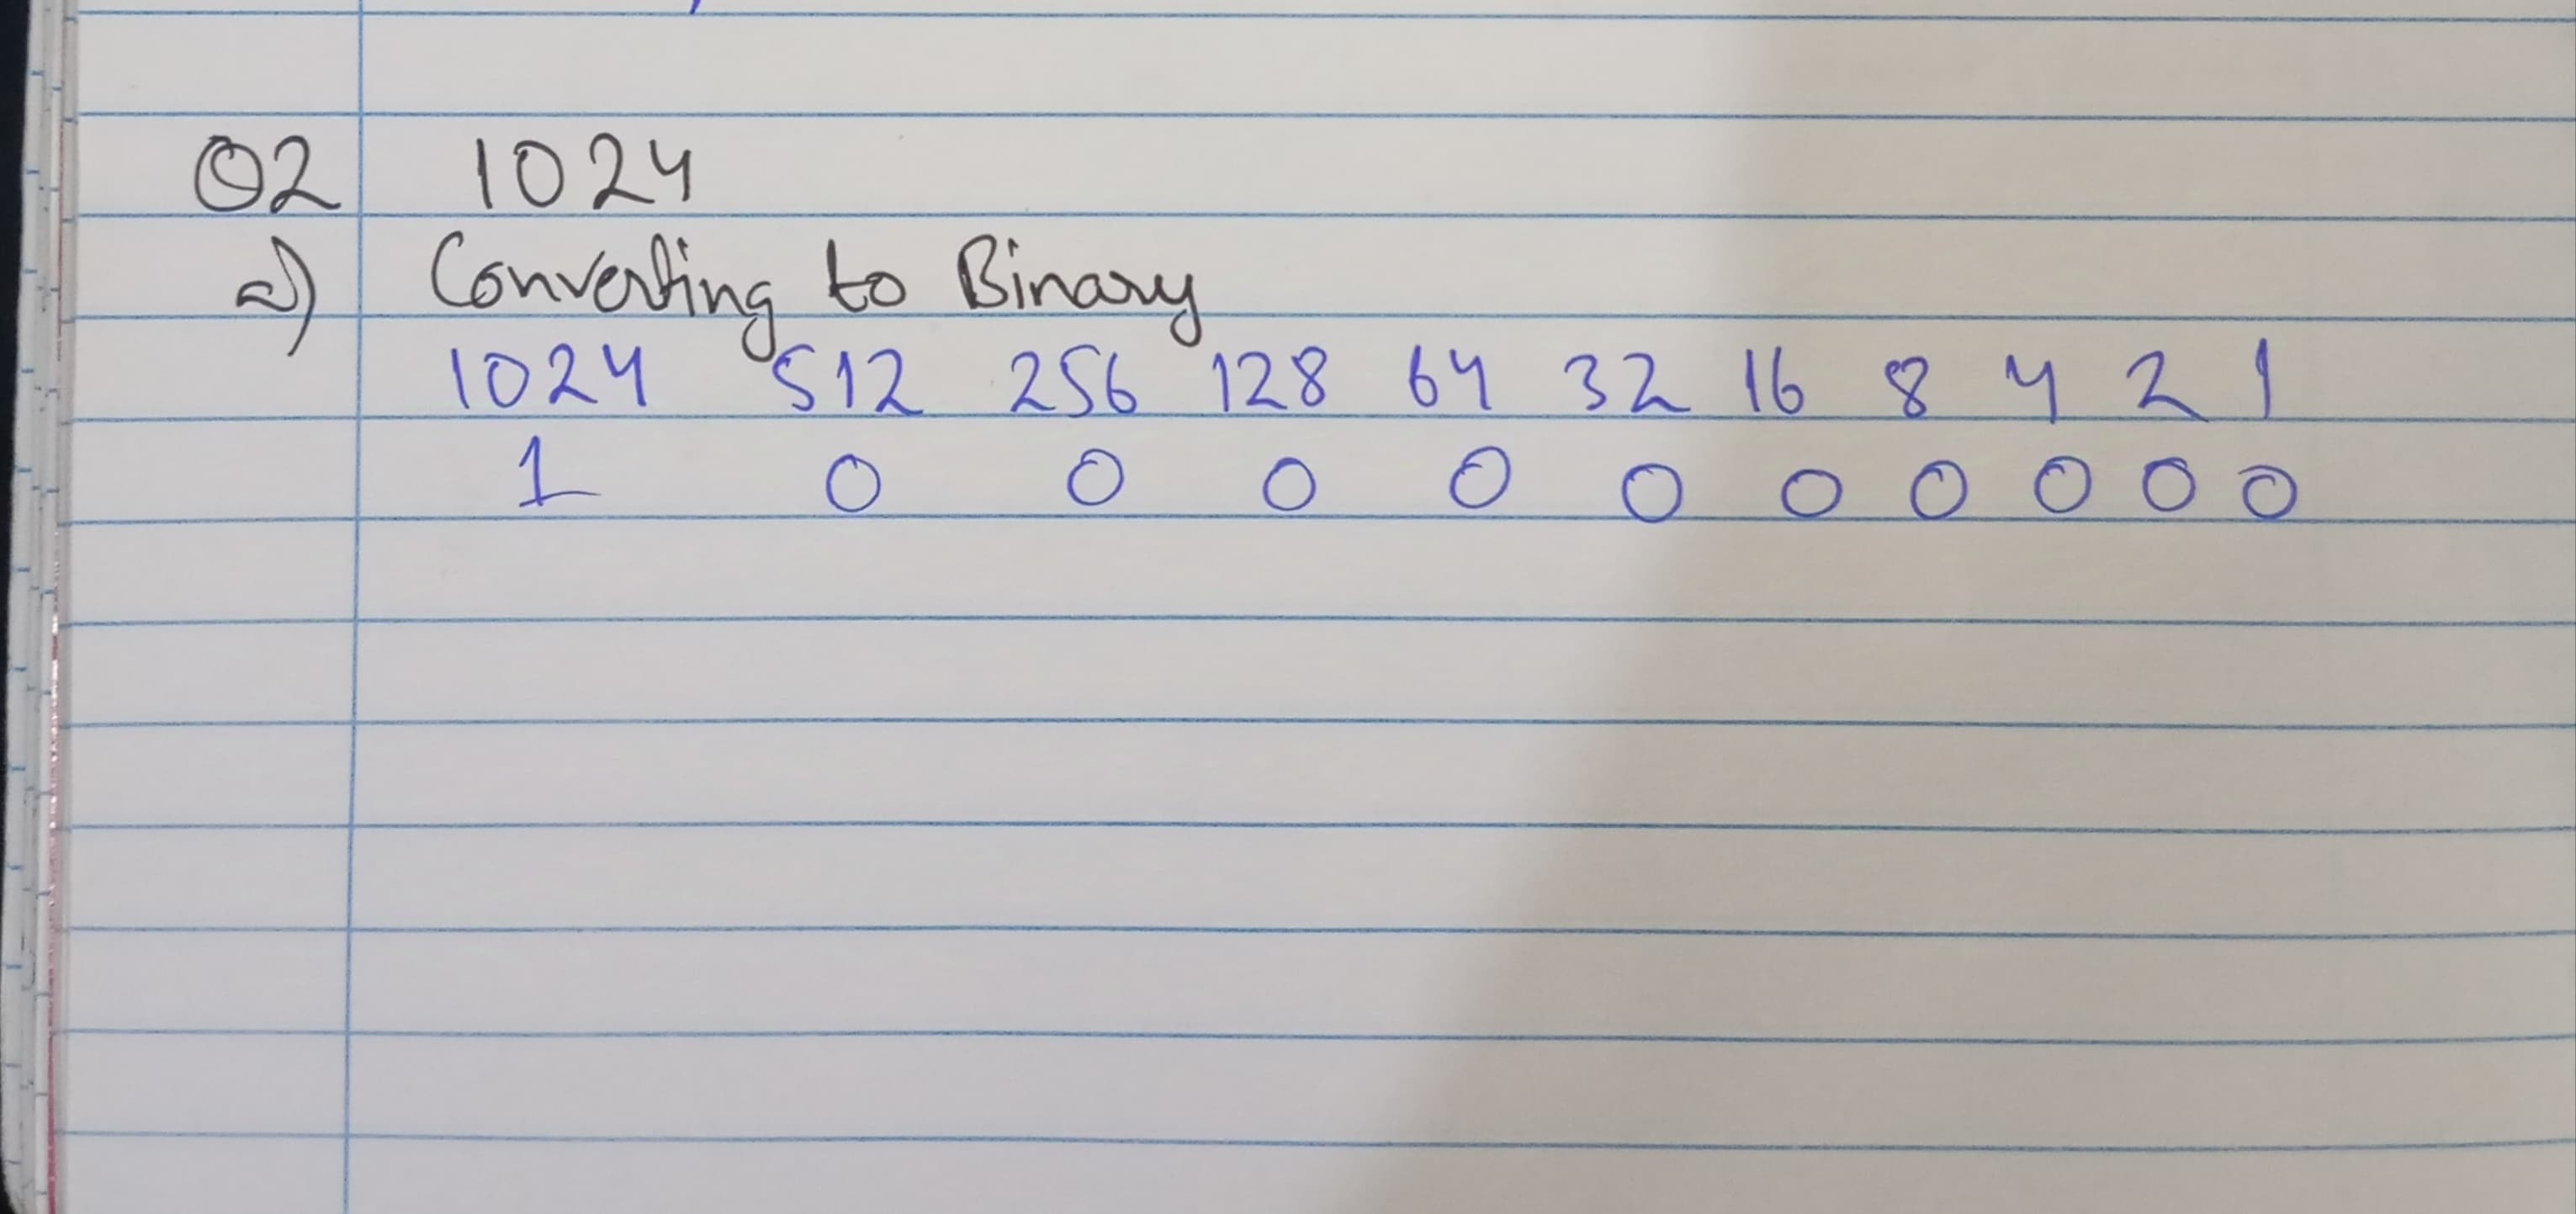 Q2 1024
a) Converting to Binary
1024 512 256 128 64 32 16 8 4 2 1
1 0 0 0 0 0 0 0 0 0 0